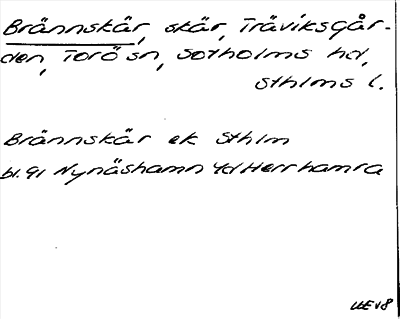 Brännskär, skär, Träviksgår-
den, Torö sn, Sotholms hd,
Sthlms l.
Brännskär ek Sthlm
bl. 91 Nynäshamn Herrhamra